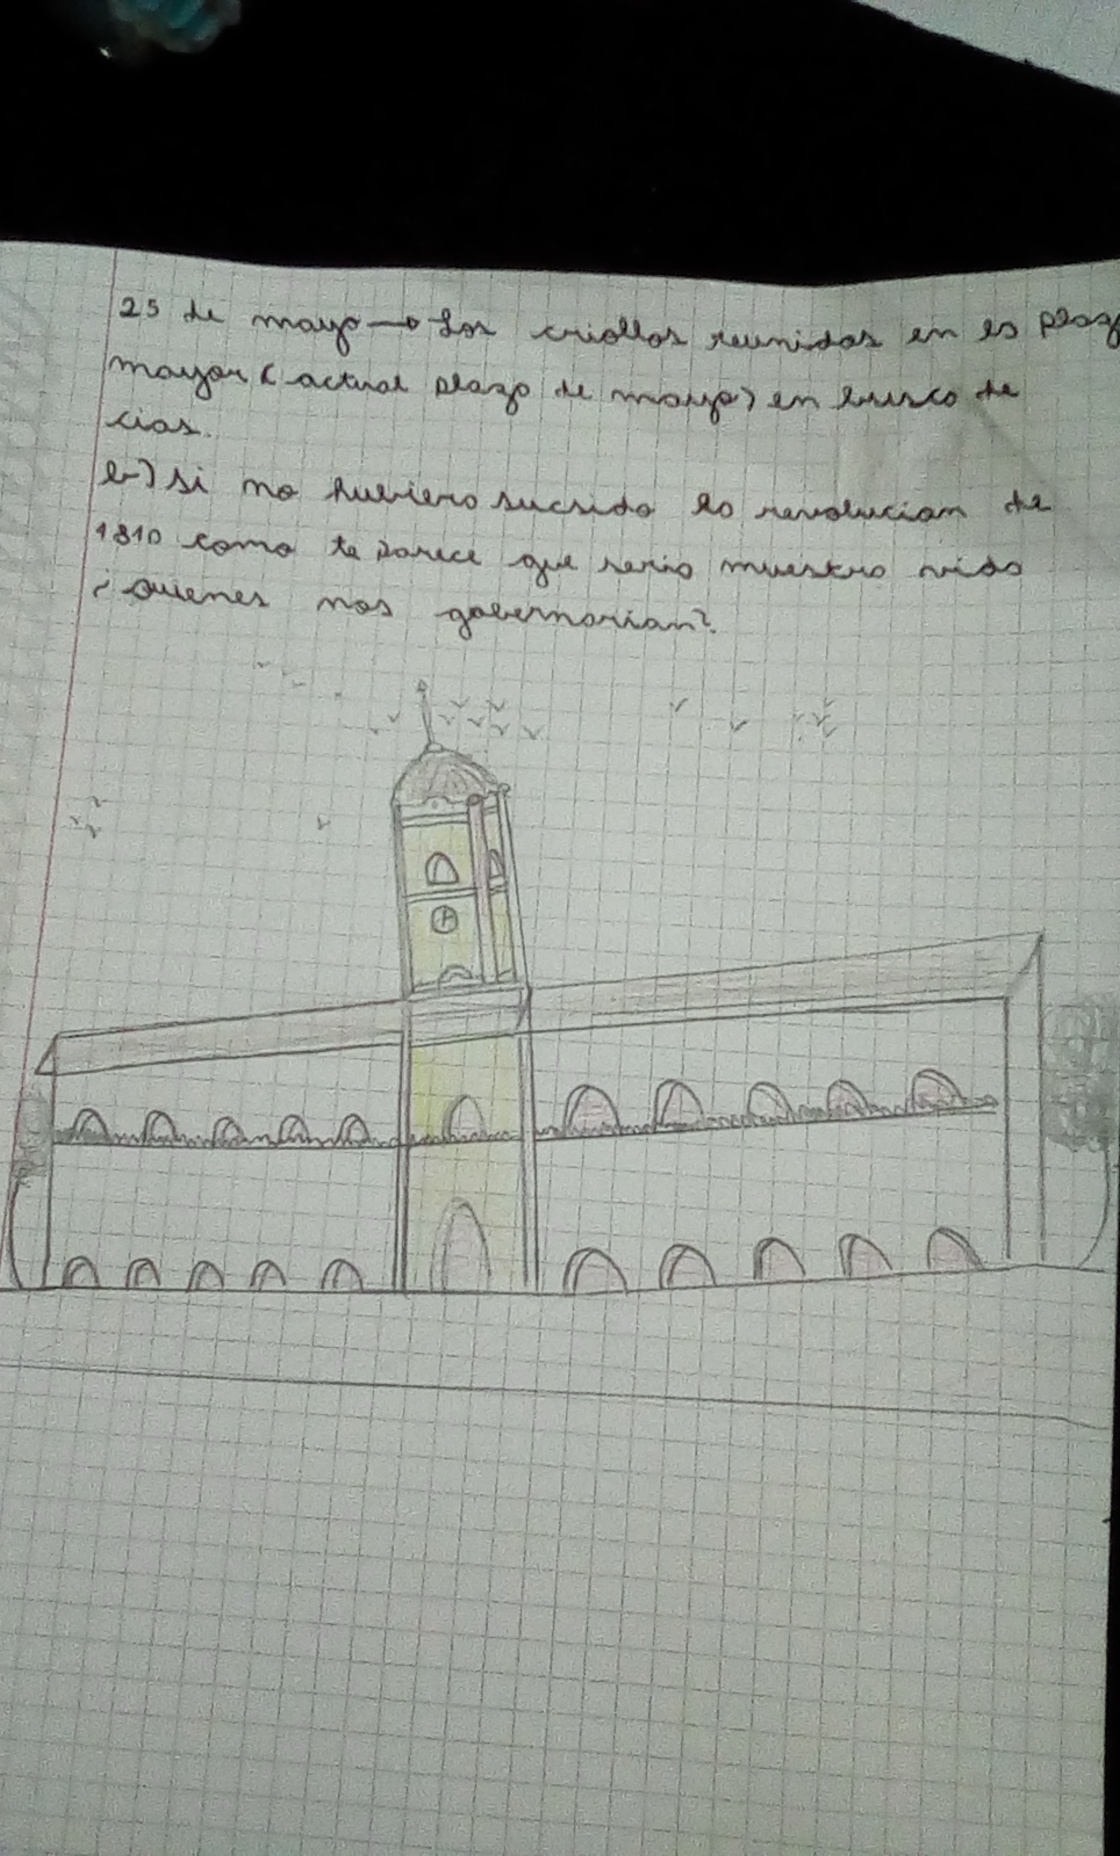 25 de mayo → Los criollos reunidos en la plaz
mayor (actual plaza de mayo) en busca de
cias.
b-) si no hubiera sucsido la revolucion de
1810 como te parece que seria nuestra vida
¿Quienes nos gobernarian?